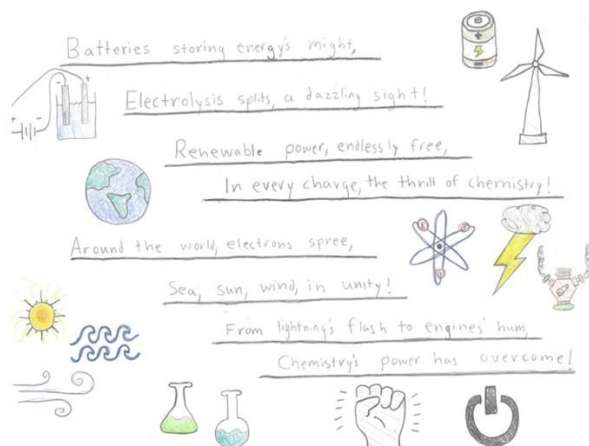 Batteries storing energy's might,
Electrolysis splits, a dazzling sight!
Renewable power, endlessly free,
In every charge, the thrill of chemistry!
Around the world, electrons spree,
Sea, sun, wind, in unity!
From lightning's flash to engines' hum,
Chemistry's power has overcome!